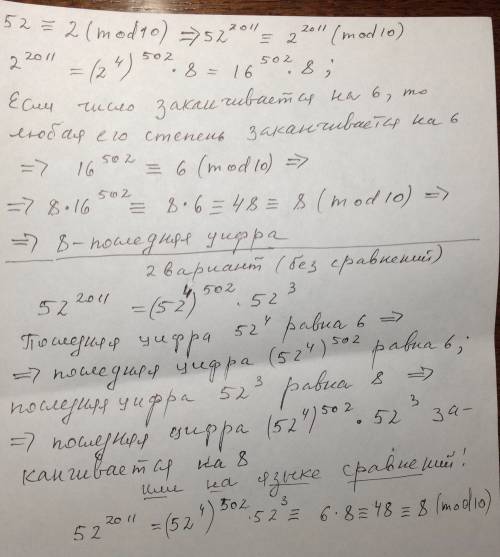 52 ≡ 2 (mod 10) ⇒ 52²⁰¹¹ ≡ 2²⁰¹¹ (mod 10)
2²⁰¹¹ = (2⁴)⁵⁰² · 8 = 16⁵⁰² · 8;
Если число заканчивается на 6, то
любая его степень заканчивается на 6
⇒ 16⁵⁰² ≡ 6 (mod 10) ⇒
⇒ 8 · 16⁵⁰² ≡ 8 · 6 ≡ 48 ≡ 8 (mod 10) ⇒
⇒ 8 - последняя цифра
2 вариант (без сравнений)
52²⁰¹¹ = (52⁴)⁵⁰² · 52³
Последняя цифра 52⁴ равна 6 ⇒
⇒ последняя цифра (52⁴)⁵⁰² равна 6;
последняя цифра 52³ равна 8 ⇒
⇒ последняя цифра (52⁴)⁵⁰² · 52³ за-
канчивается на 8
или на языке сравнений!
52²⁰¹¹ = (52⁴)⁵⁰² · 52³ ≡ 6 · 8 ≡ 48 ≡ 8 (mod 10)